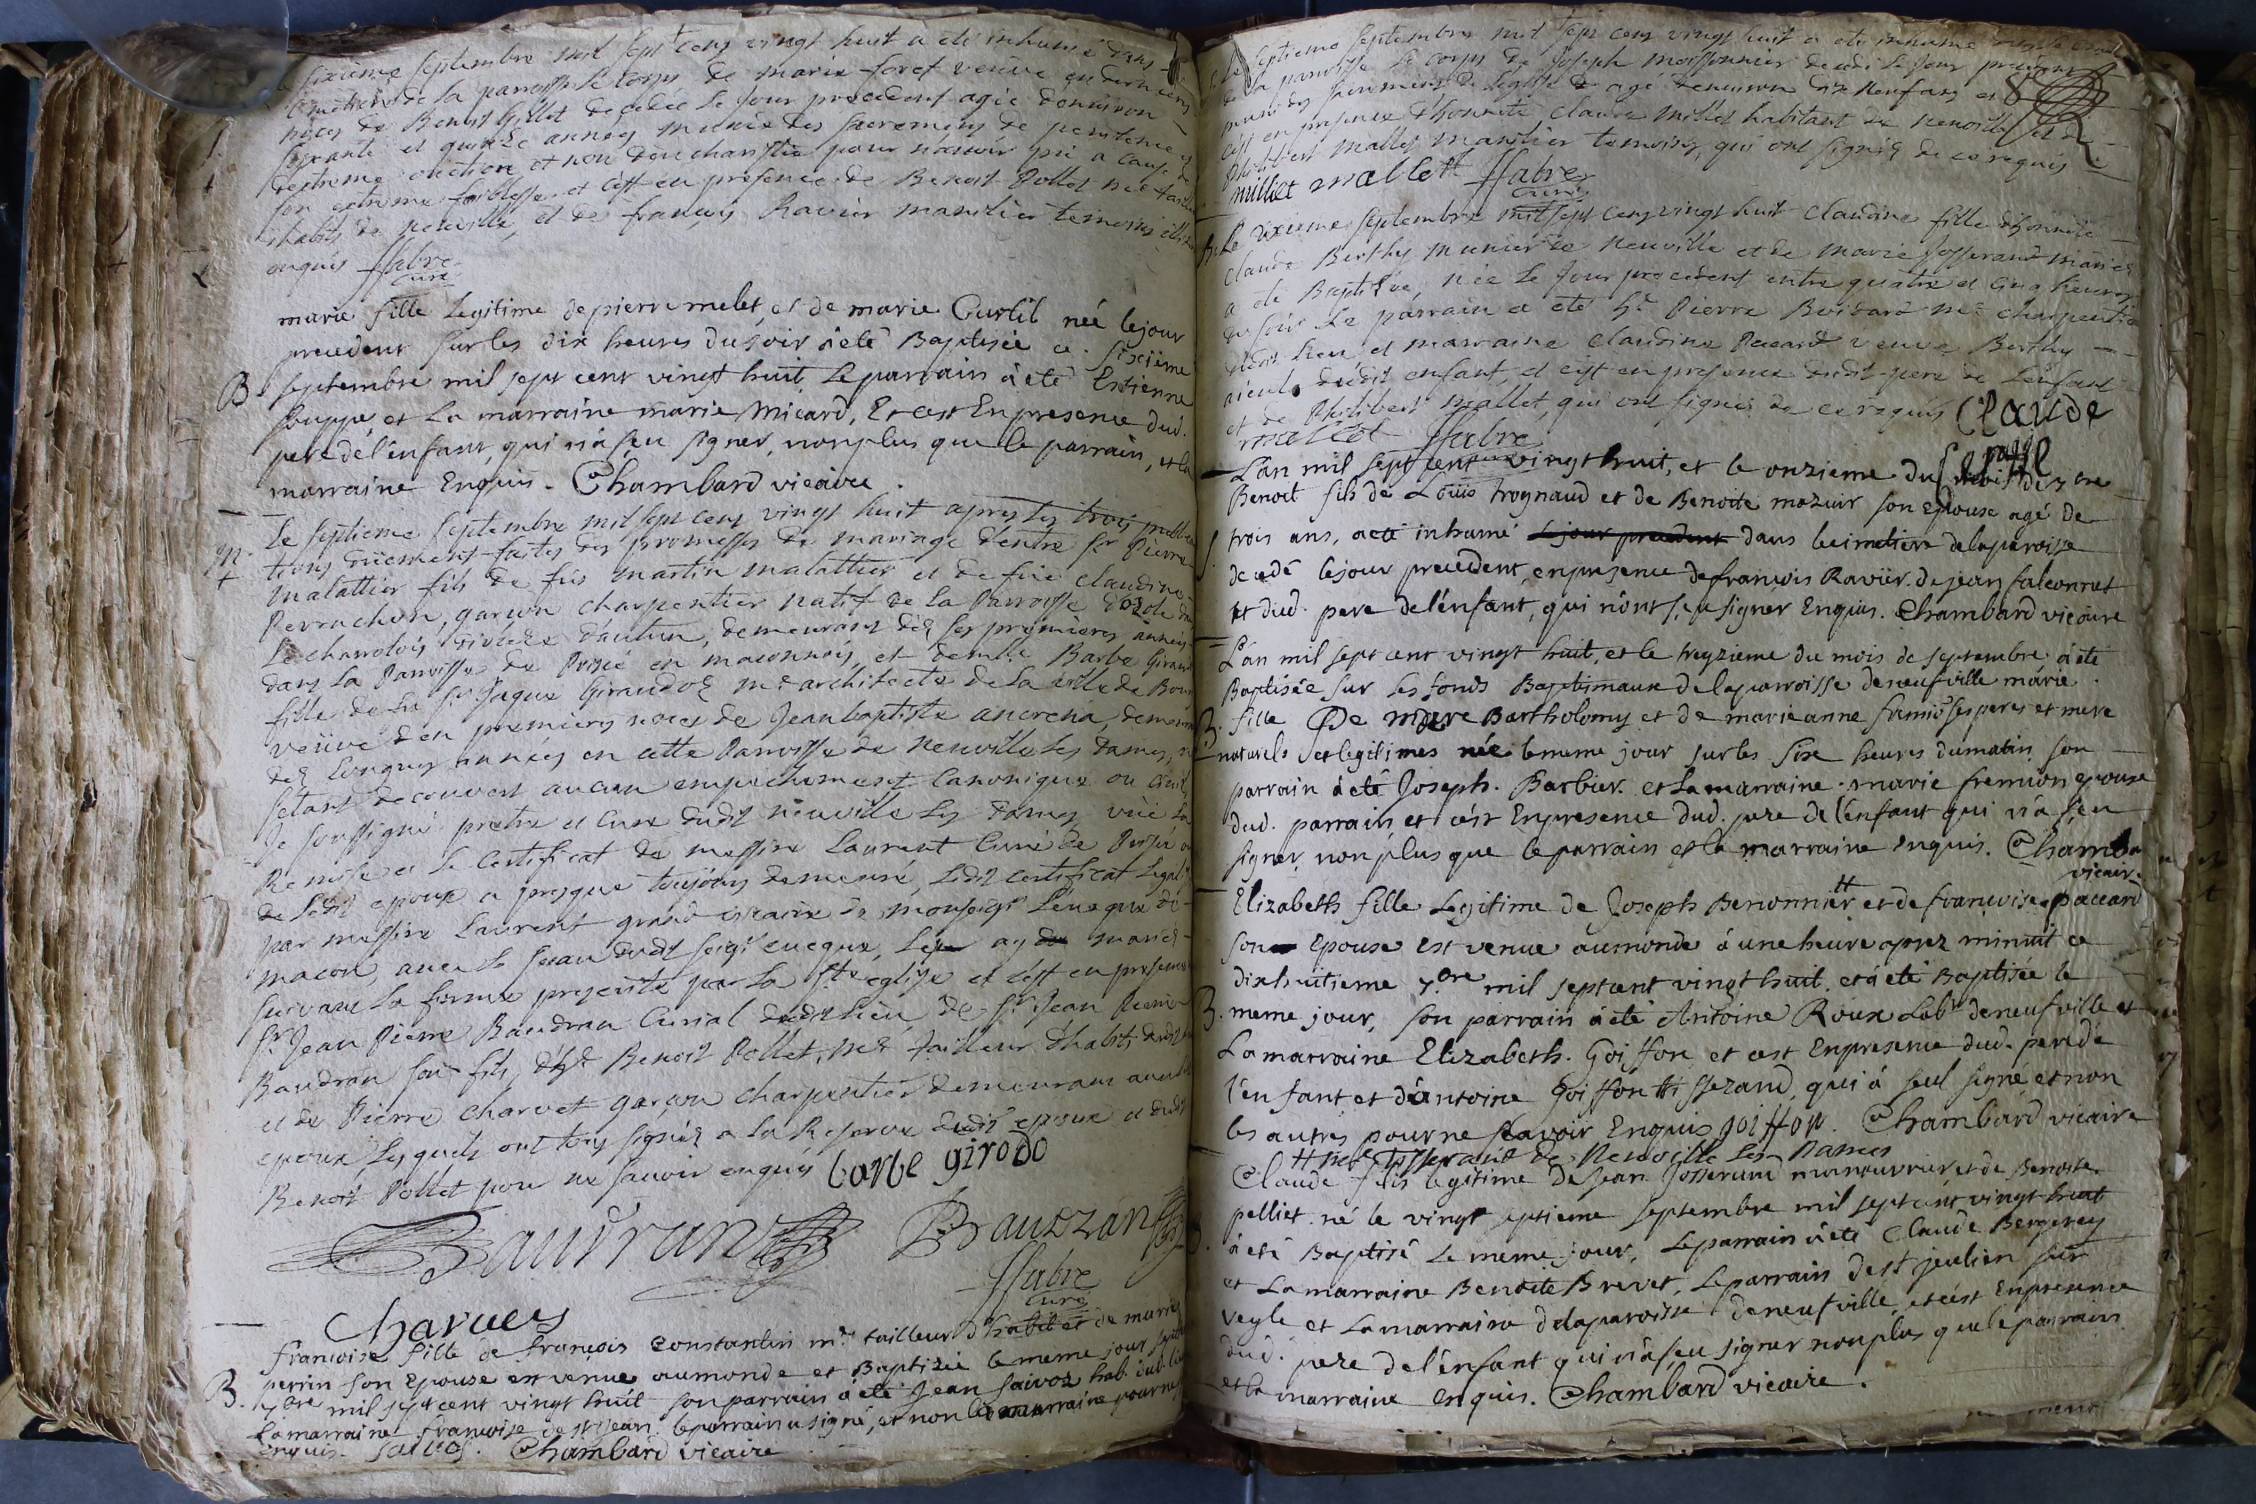 sixième septembre mil sept cens vingt huit a été inhumé dans le
cimetiere de la parroisse le corps de marie foret veuve en dernieres
nôces de Benoit Gillet decedée le jour precedent agée denviron
soixante et quinze années munie des sacremens de penitence et
dextreme onction, et non deucharistie pour navoir pû a cause de
son extreme foiblesse et c'est en presence de Benoit Pollet me tailleur
dhabits de neuville, et de françois Ravier manilier temoins illiterés
enquis ffabre
curé
marie fille legitime de pierre melet, et de marie Curtil née le jour
precedent sur les dix heures du soir à eté Baptisée ce sixième
B septembre mil sept cent vingt huit, Le parrain à eté Estienne
souppe, et La marraine marie Micard, Et c'est En presence dud.
pere de l'enfant, qui n'a sçu signer, non plus que le parrain, et la
marraine Enquis. Chambard vicaire.
Le septieme septembre mil sept cens vingt huit apres les trois publica
M tions düement faites des promesses de mariage d'entre sr Pierre
malattier fils de fus martin malattier et de füe claudine
Perrachon, garçon charpentier natif de la Parroisse d'ozole dans
Le charrolois diocese d'autun, demeurant dès ses premieres années
dans la Parroisse de Prissé en maconnois, et demlle Barbe Giraud
fille de fû sr Jaque Giraudoz me architecte de la ville de Bourg
veüve d'en premieres noces de Jean baptiste demeurant
dez longues années en cette Parroisse de Neuville les dames, ne
setant decouvert aucun empechement canonique ou civil,
Je soussigné pretre et curé dudit neuville les Dames vûe la
Remise et le certificat de messire Laurent curé de Prissé ou
de Ledit epoux a presque toujours demeuré, Ledit certificat legalisé
par messire Laurent grand vicaire de monseigr Leveque de
macon, avec le sceau dudit seigr eveque, Les ay mariés
suivant la forme prescrite par La Ste eglise et c'est en presence
sr Jean Pierre Baudran Curial dudit lieu, de sr Jean Pierre
Baudran son fils, d'ht Benoit Pollet, me tailleur d'habits dudit
et de Pierre charvet garçon charpentier demeurant avec
epoux Lesquels ont tous signés a la Reserve dudit epoux et dudit
Benoit Pollet pour ne sçavoir enquis barbe girodo
Baudran Baudran
ffabre
curé
Charvet
françoise fille de françois Constantin me tailleur d'habit et de marie
perrin son Epouse est venue au monde et Baptisée le meme jour
B. 7bre mil sept cent vingt huit son parrain à eté Jean saivoz hab. dud. lieu
La marraine françoise de st Jean. le parrain a signé, et non la marraine pour ne
enquis. Saivos. Chambard vicaire
Le septieme septembre mil sept cens vingt huit a eté inhumé
de la paroisse le corps de Joseph moissonnier decedé le jour precedent
muni des sacremens de leglise agé denviron dix neuf ans et 8
c'est en presence d'honnete claude millet habitant de neuville et de
philibert mallet manilier temoins, qui ont signés de ce requis
milliet mallett ffabre
curé
B. Le dixieme septembre mil sept cens vingt huit claudine fille d'honnete
claude Berthy munier de neuville et de marie Josserand mariés
a été Baptisée, née Le jour precedent entre quatre et cinq heures
du soir Le parrain a eté ht Pierre Boibard me charpentier
dudit lieu, et marraine claudine Pacard veuve Berthy
aieule dudit enfant, et c'est en presence dudit pere de l'enfant
et de Philibert mallet, qui ont signés de ce requis Claude
mallet ffabre
curé
L'an mil sept cent vingt huit, et le onzieme du mois de 7bre
Benoit fils de Loüis troynaud et de Benoite mazuir son Epouse agé de
trois ans, a eté inhumé le jour precedent dans le cimetiere de la paroisse
S. decedé le jour precedent, en presence de françois Raviér. de jean falconnet
et dud. pere de l'enfant, qui n'ont sçu signer Enquis. Chambard vicaire
L'an mil sept cent vingt huit, et le treyzieme du mois de septembre à eté
Baptisée sur les fonds Baptismaux de la parroisse de neufville marie
B. fille De Bartholomy et de marie anne ses pere et mere
naturels et legitimes née le meme jour sur les six heures du matin, son
parrain à eté Joseph. Barbier. et La marraine. marie fremion epouse
dud. parrain et c'est En presence dud. pere de l'enfant qui n'a sçu
signer, non plus que le parrain et la marraine enquis. Chamba
vicair.
Elizabeth fille Legitime de Joseph Beronnier tt et de françoise paccard
son Epouse est venue au monde à une heure aprez minuit ce
dixhuitieme 7.bre mil sept cent vingt huit. et à eté Baptisée le
B. meme jour, son parrain à eté Antoine Roux Labr de neufville et
La marraine Elizabeth. Goiffon et c'est En presence dud. pere de
l'enfant et d'antoine Goiffon tisserand, qui à seul signé et non
les autres pour ne scavoir Enquis goiffon. Chambard vicaire
tt me tisserand de Neuville Les Dames
Claude fils legitime de Jean Josserand manouvrier et de Benoite
pelliet. né le vingt septieme septembre mil sept cent vingt huit
B. à eté Baptisé Le meme jour, Le parrain à eté Claude Bergerey
et La marraine Benoite Brevet, Le parrain de st jeulien sur
veyle et La marraine de la paroisse de neufville, et c'est En presence
dud. pere de l'enfant qui n'a sçu signer non plus que le parrain
et la marraine Enquis. Chambard vicaire.